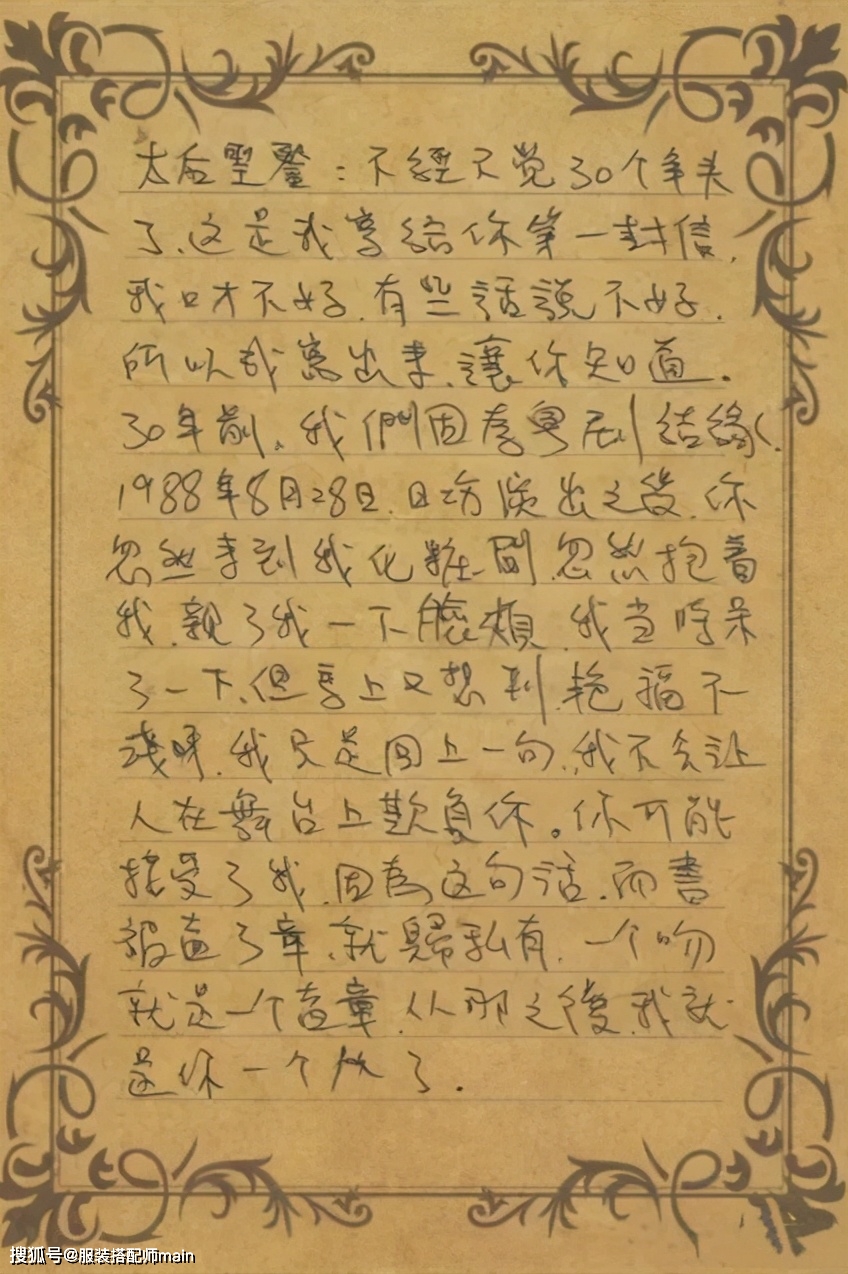 太后聖鑒：不經不覚30个年头
了、这是我寫給你第一封信,
我口才不好,有些話説不好,
所以我寫出來、讓你知道.
30年前、我們因為粤剧結緣、
1988年8月28日,日場演出之後,你
忽然來到我化粧間,忽然抱着
我,親了我一下臉頰,我当時呆
了一下、但馬上又想到,艳福不
淺呀,我只是回上一句,我不会让
人在舞台上欺負你。你可能
接受了我,因為这句话,而書
被盖了章、就歸私有,一个吻
就是一个盖章,从那之後,我就
是你一个人了.
搜狐号@服装搭配师main